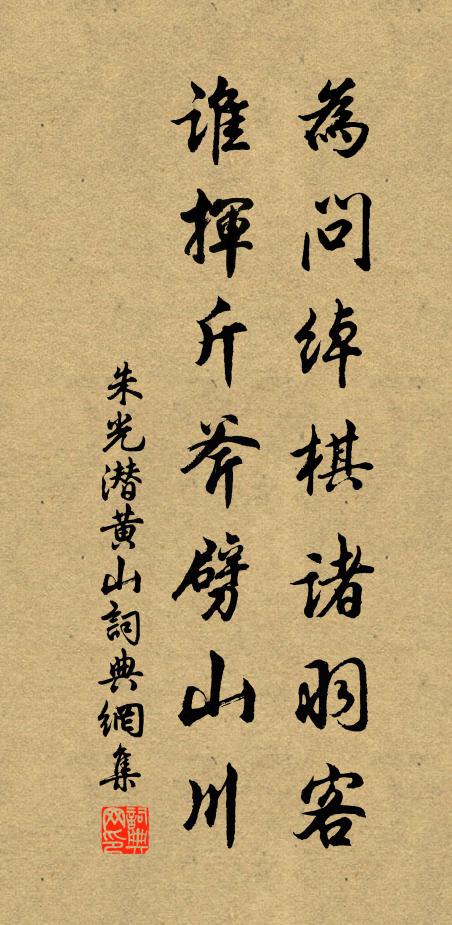 為問綽棋諸羽客
誰揮斤斧劈山川
朱光潛黃山詞典網集
詞典網印